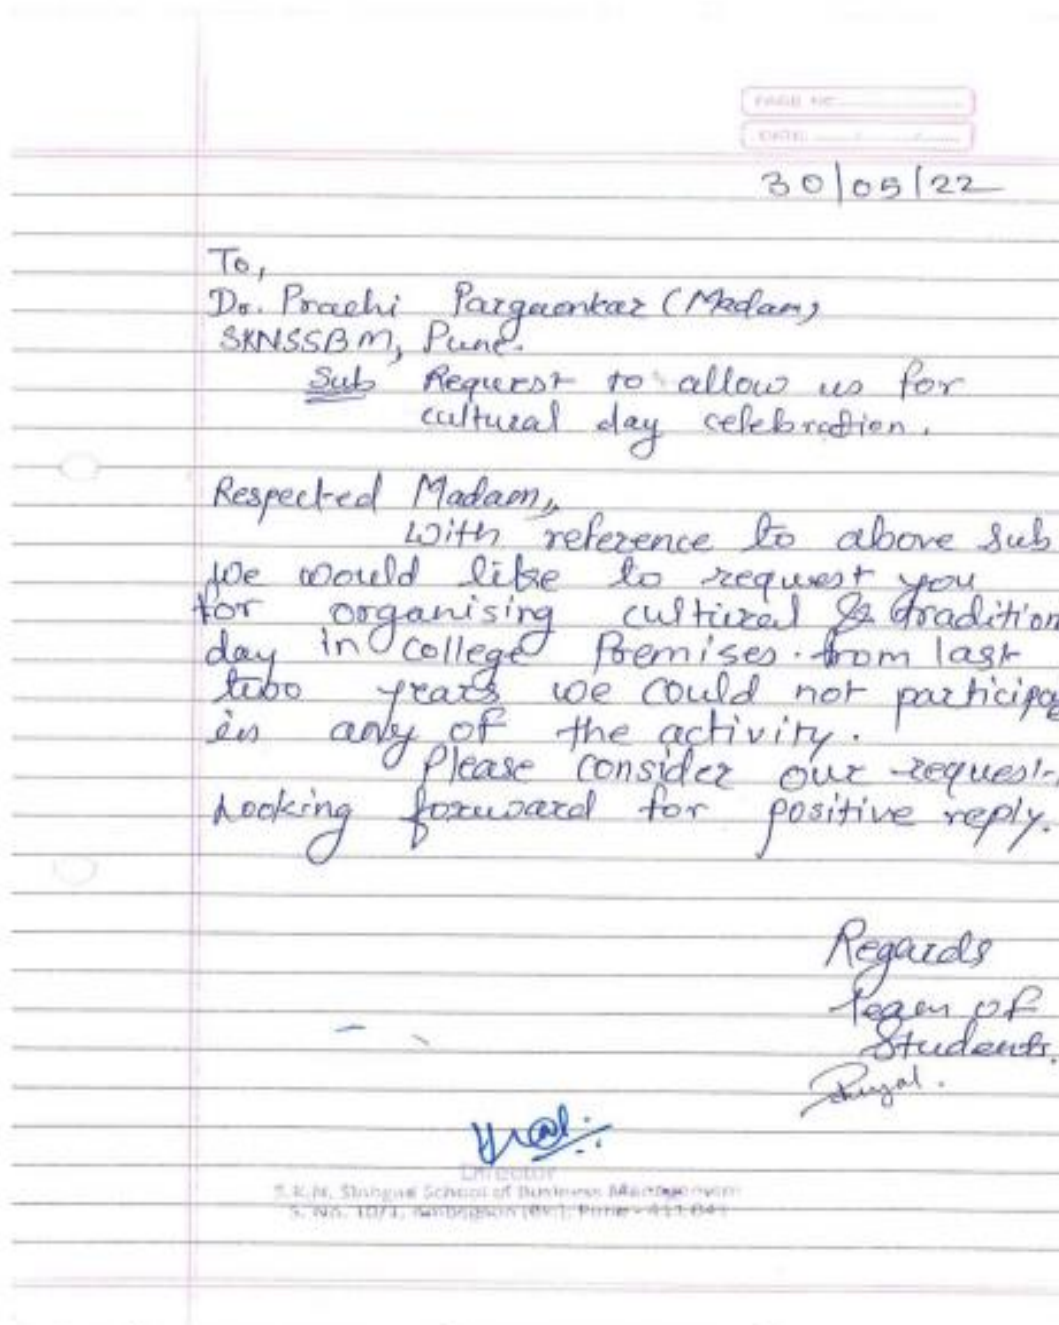 PAGE NO.
DATE: / /
30/05/22
To,
Dr. Prachi Pargaonkar (Madam)
SKNSSBM, Pune.
Sub Request to allow us for
cultural day celebration.
Respected Madam,
With reference to above sub
We would like to request you
for organising cultural & tradition
day in college Premises. from last
two years we could not participa
in any of the activity.
Please consider our request.
Looking forward for positive reply.
Regards
Team of
Students.
Director
S.K.N. Sinhgad School of Business Management
S. No. 10/1, Ambegaon (Bk.), Pune - 411 041